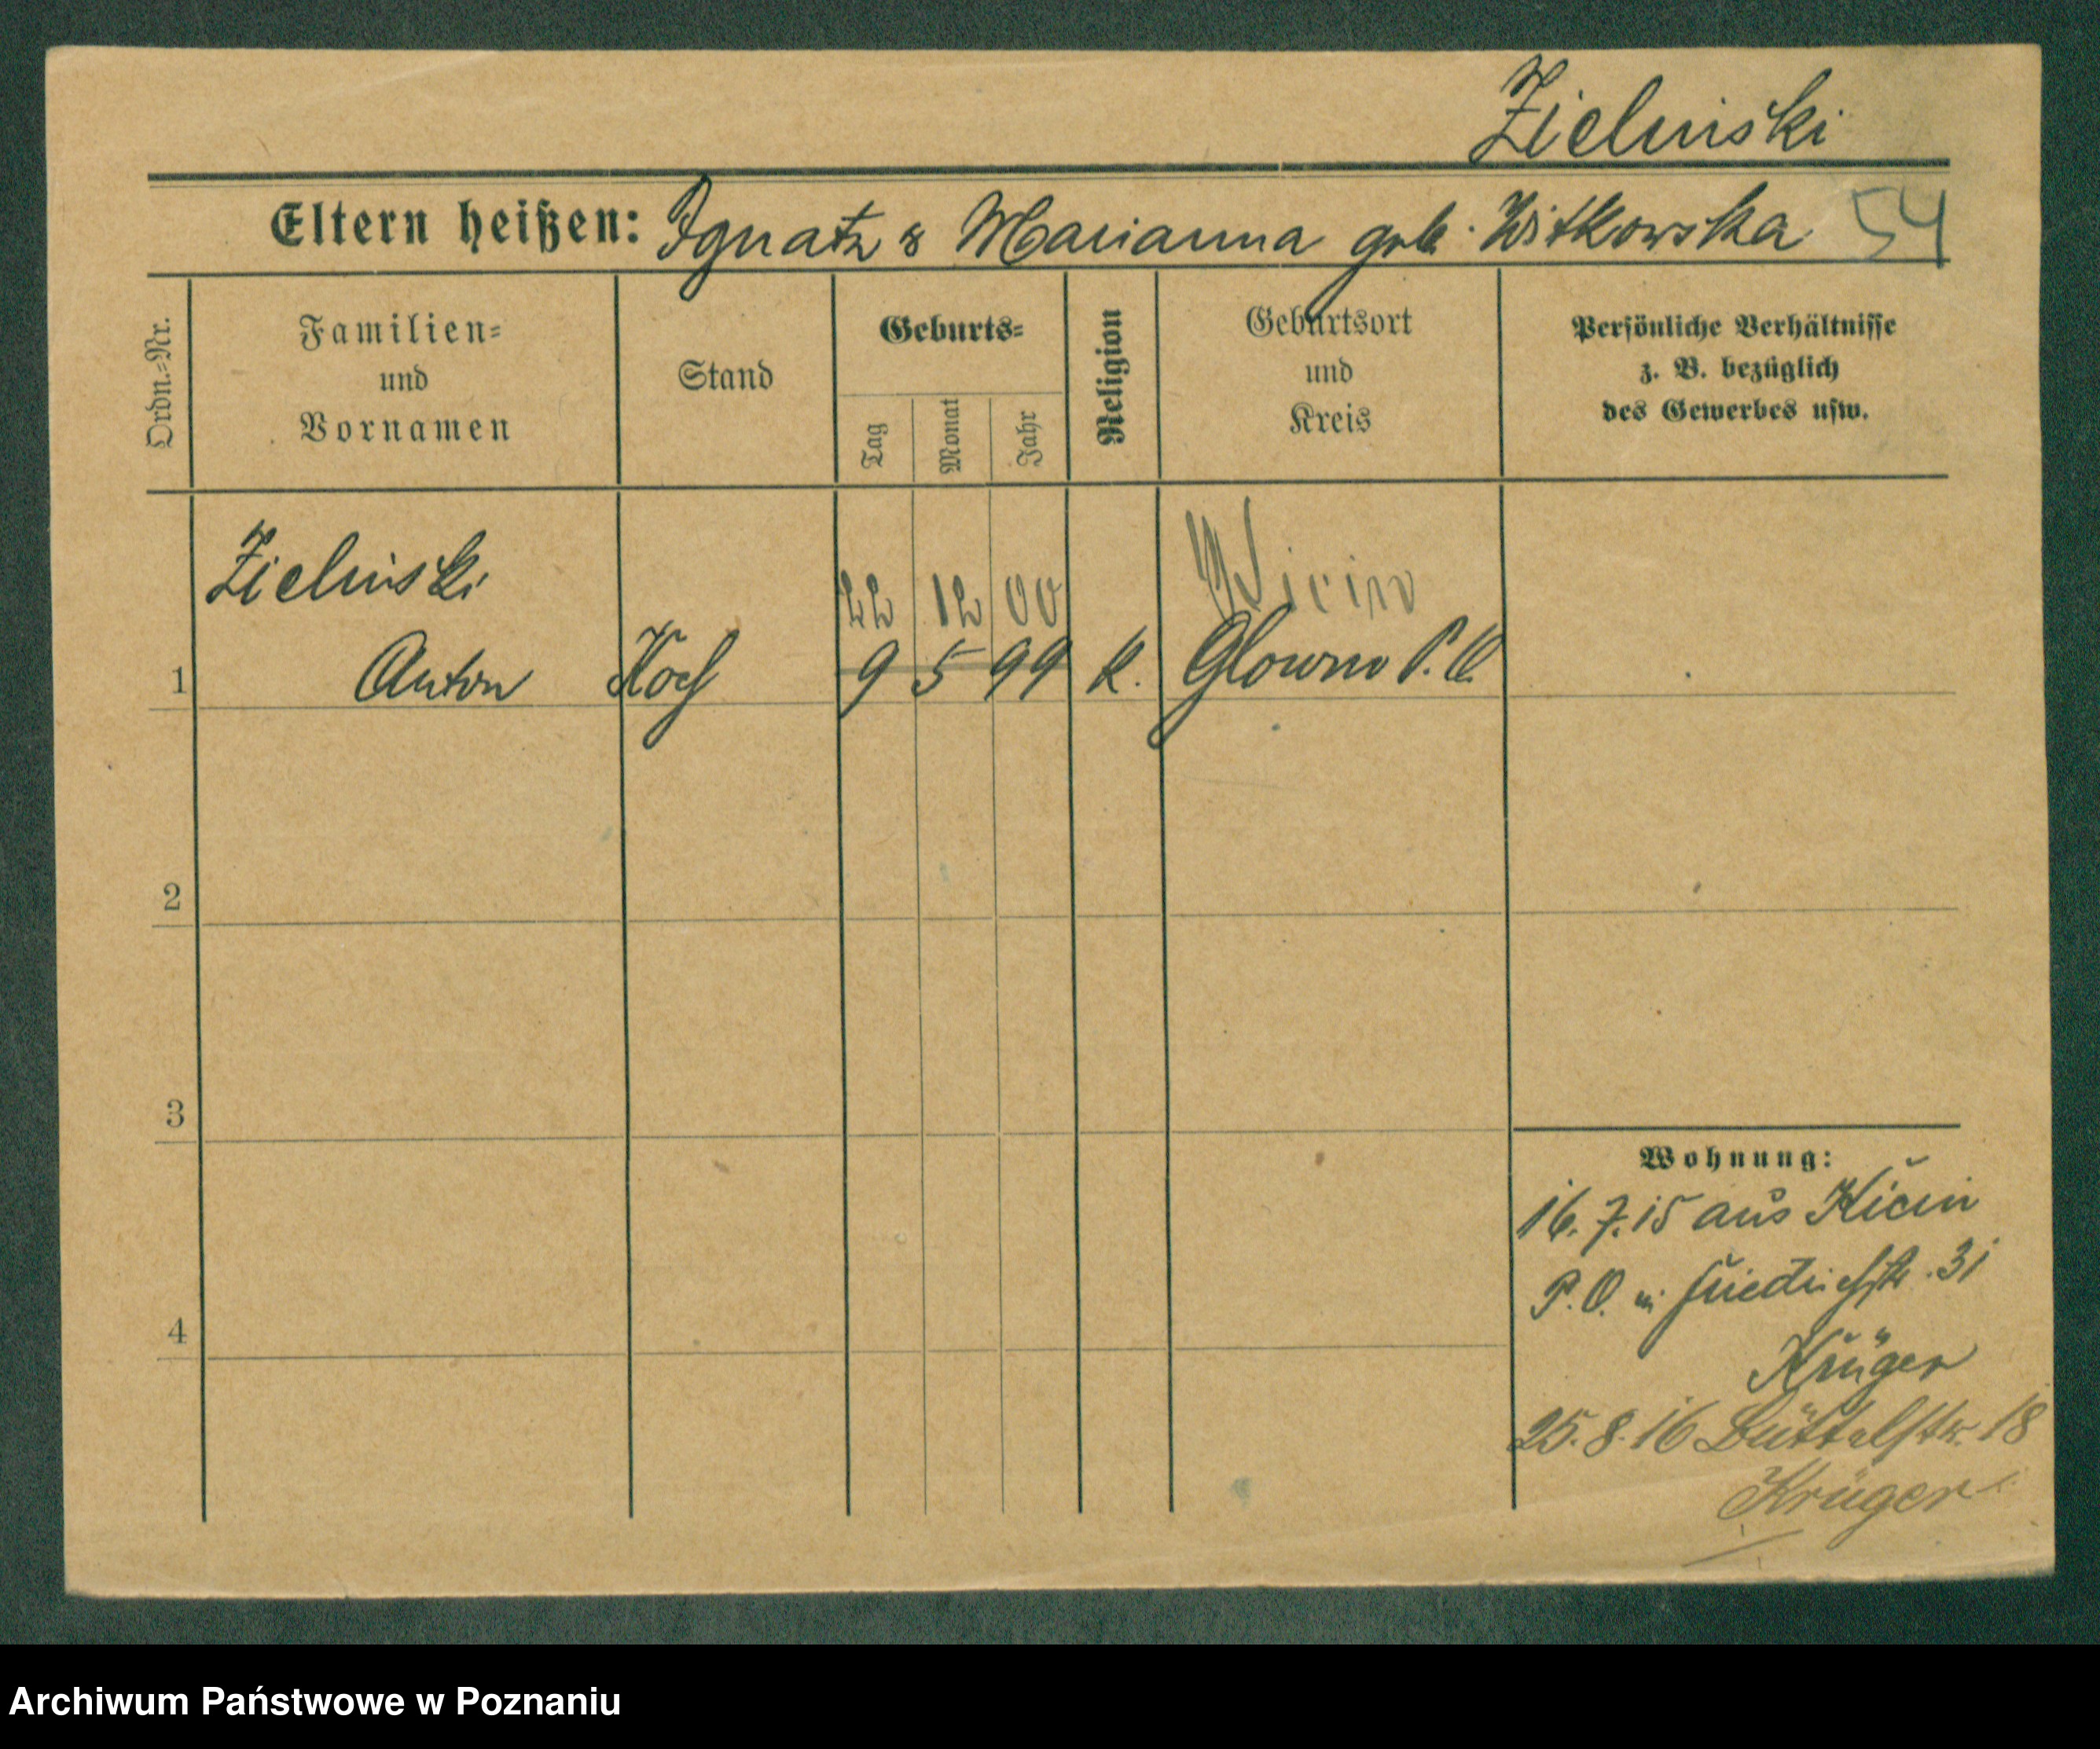 Zielinski
Eltern heißen: Ignatz & Marianna geb. Witkowska 54
Ordn.-Nr.
Familien-
und
Vornamen
Stand
Geburts-
Tag
Monat
Jahr
Religion
Geburtsort
und
Kreis
Persönliche Verhältnisse
z. B. bezüglich
des Gewerbes usw.
Zielinski
22 12 00
1 Anton Koch 9 5 99 k. Glowno P. O.
2
3
4
Wohnung:
16.7.15 aus Kicin
P.O. in Friedrichstr. 31
Krüger
25.8.16 18
Krüger
Archiwum Państwowe w Poznaniu